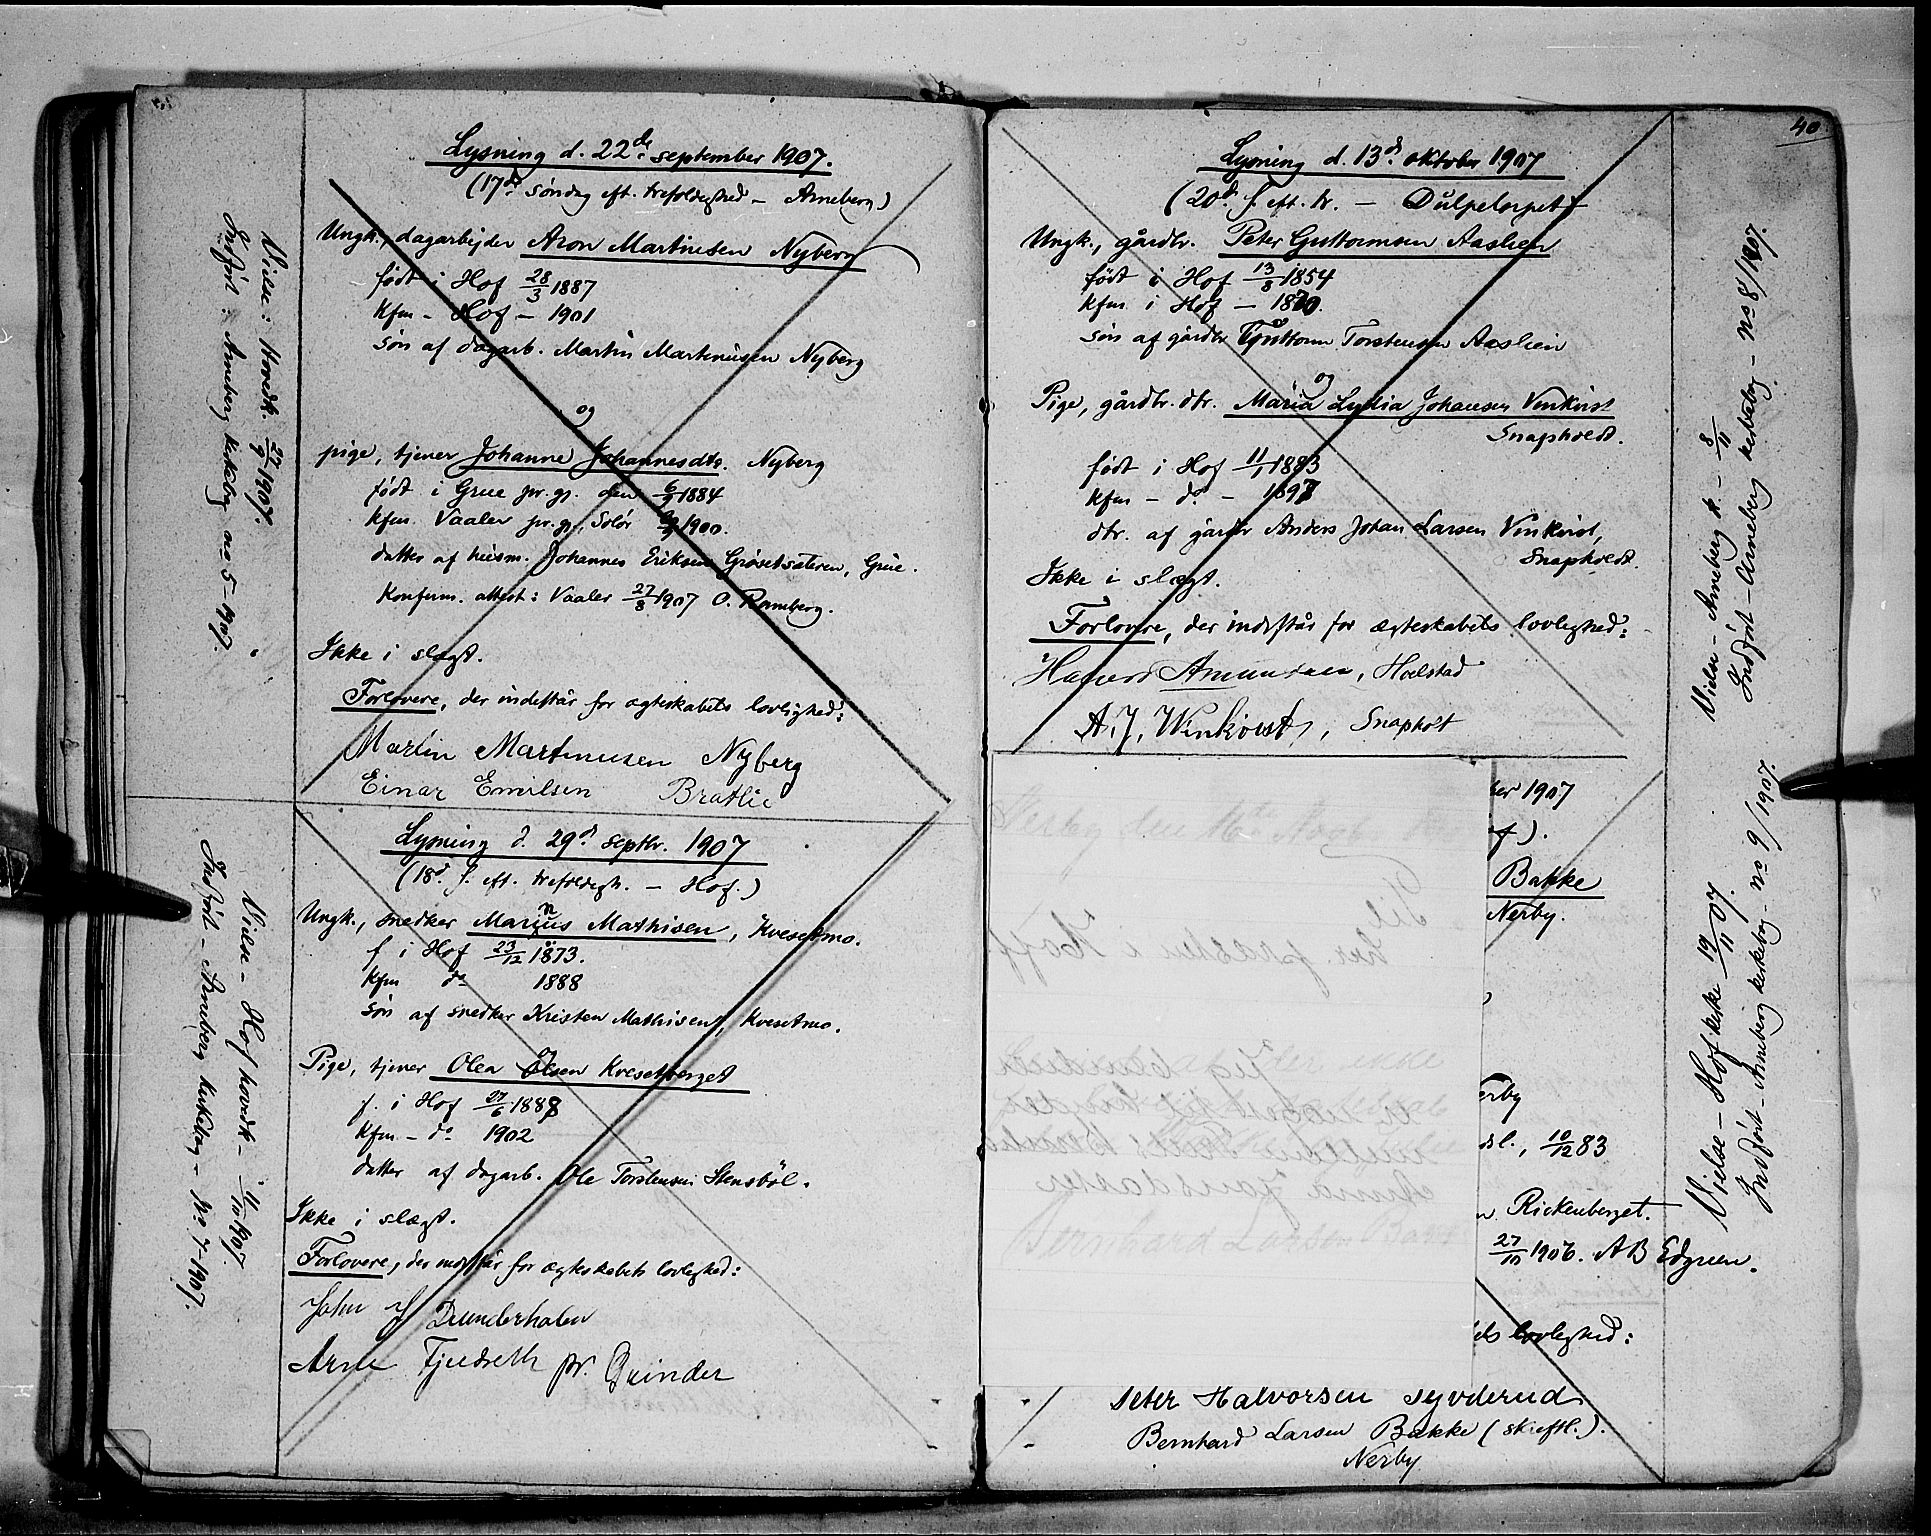 Lysning d. 22de september 1907.
(17de søndag eft. trefoldighed – Arneberg)
Ungk., dagarbejder Aron Martinsen Nyberg
født i Hof 28/3 1887
Kfm – Hof – 1901
søn af dagarb. Martin Martinusen Nyberg
og
pige, tjener Johanne Johannesdtr. Nyberg
født i Grue pr.gj. den 6/9 1884
Kfm. Vaaler pr.gj. Solør 1900.
datter af husm. Johannes Eriksen Grøsetsæteren, Grue.
Konferm. attest: Vaaler 27/8 1907 O. Ramberg.
Ikke i slægt.
Forlovere, der indestår for ægteskabets lovlighed:
Martin Martinusen Nyberg
Einar Emilsen Bratlie
Vielse: Hovedk. 27/9 1907.
Indført: Arneberg kirkebog no 5 – 1907.
Lysning d. 29de septbr. 1907
(18de s. eft. trefoldigh. – Hof.)
Ungk., snedker Marinus Mathisen, Kvesetmo.
f i Hof 23/12 1873.
Kfm do 1888
søn af snedker Kristen Mathisen, Kvesetmo.
og
Pige, tjener Olea Olsen Kvesetberget
f. i Hof 27/6 1887
Kfm – do 1902
datter af dagarb. Ole Torstensen Stensbøl.
Ikke i slægt.
Forlovere, der indestår for ægteskabets lovlighed:
John J Dunderhalen
Arne Fjeldseth pr. Grinder
Vielse – Hof hovedk – 11/10 1907.
Indført – Arneberg kirkebog – No 7 – 1907.
40
Lysning d. 13de oktober 1907
(20de s. eft. tr. – Dulpetorpet)
Ungk., gårdbr. Peter Guttormsen Aaslien
født i Hof 13/8 1854
Kfm i Hof – 1870.
søn af gårdbr Guttorm Torstensen Aaslien
og
Pige, gårdbr. dtr. Maria Lydia Johansen Venkvist
Snapholdt.
født i Hof 11/1 1883
Kfm – do – 1897
dtr. af gårdbr Anders Johan Larsen Venkvist,
Snapholdt.
Ikke i slægt.
Forlovere, der indestår for ægteskabets lovlighed:
Hans Amundsen, Holstad
A. J. Winkvist, Snapholt
Vielse – Arneberg k. – 8/11
Indført – Arneberg kirkebog – no 8/1907.
ber 1907
f).
Bakke
Nerby.
erby
dsl., 10/12 83
n Rickenberget.
27/10 1906. AB Edgren.
ets lovlighed:
Peter Halvorsen Syvderud
Bernhard Larsen Bakke (skriftl.).
Nerby
Vielse – Hof kirke 19/11 07.
Indført – Arneberg kirkebog – no 9/1907.